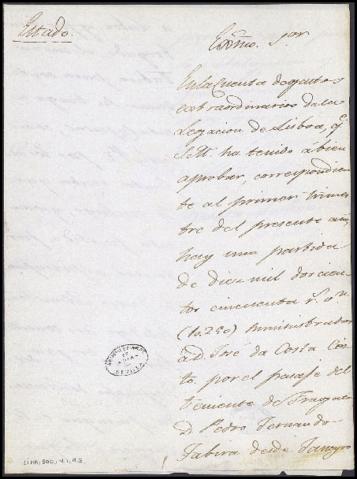 Estado.
Exmo. Sor.
En la Cuenta de gastos
extraordinarios de la
Legacion de Lisboa, q.e
S.M. ha tenido á bien
aprobar, correspondien
te al primer trimes
tre del presente año,
hay una partida
de diez mil doscien
tos cincuenta r.s v.n
(10.250) suministrados
a D. José da Costa Cou
to, por el pasaje del
Teniente de Fragata
D. Pedro Fernando
Tabira desde Tanger
SEVILLA